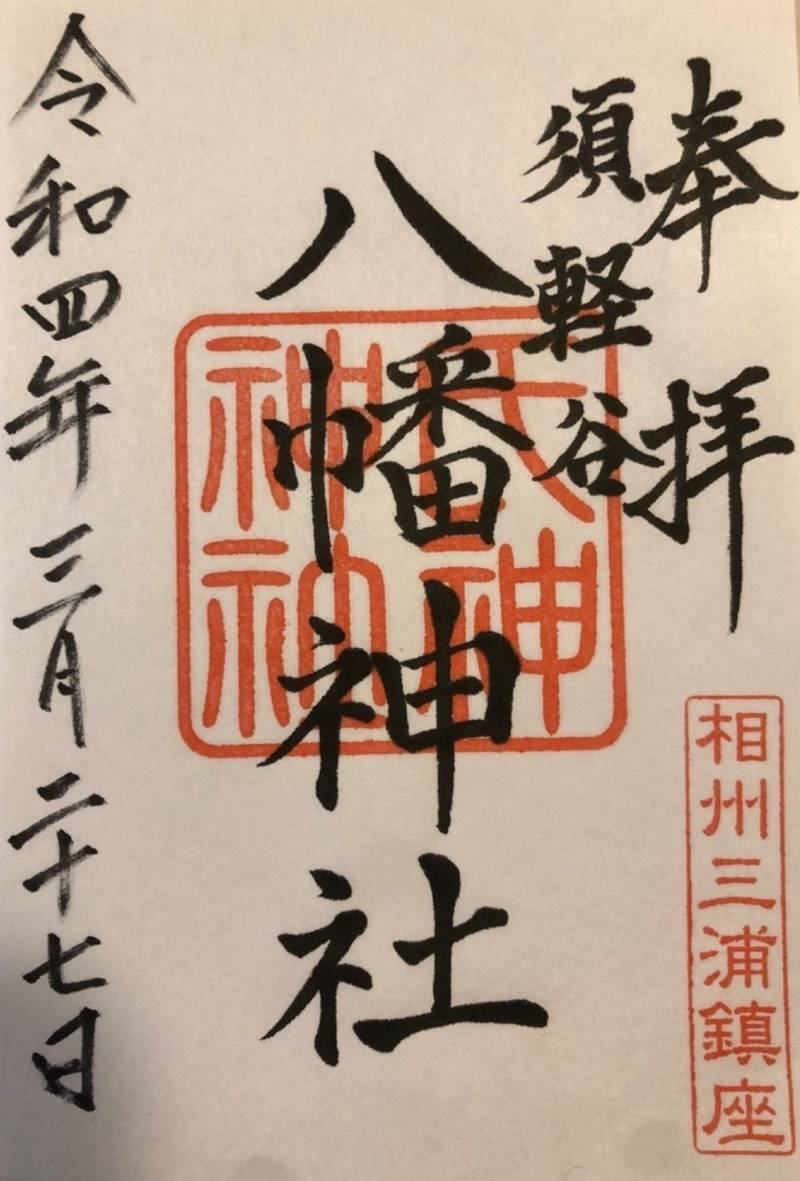 奉拝
須軽谷
八幡神社
氏神
神社
相州三浦鎮座
令和四年三月二十七日